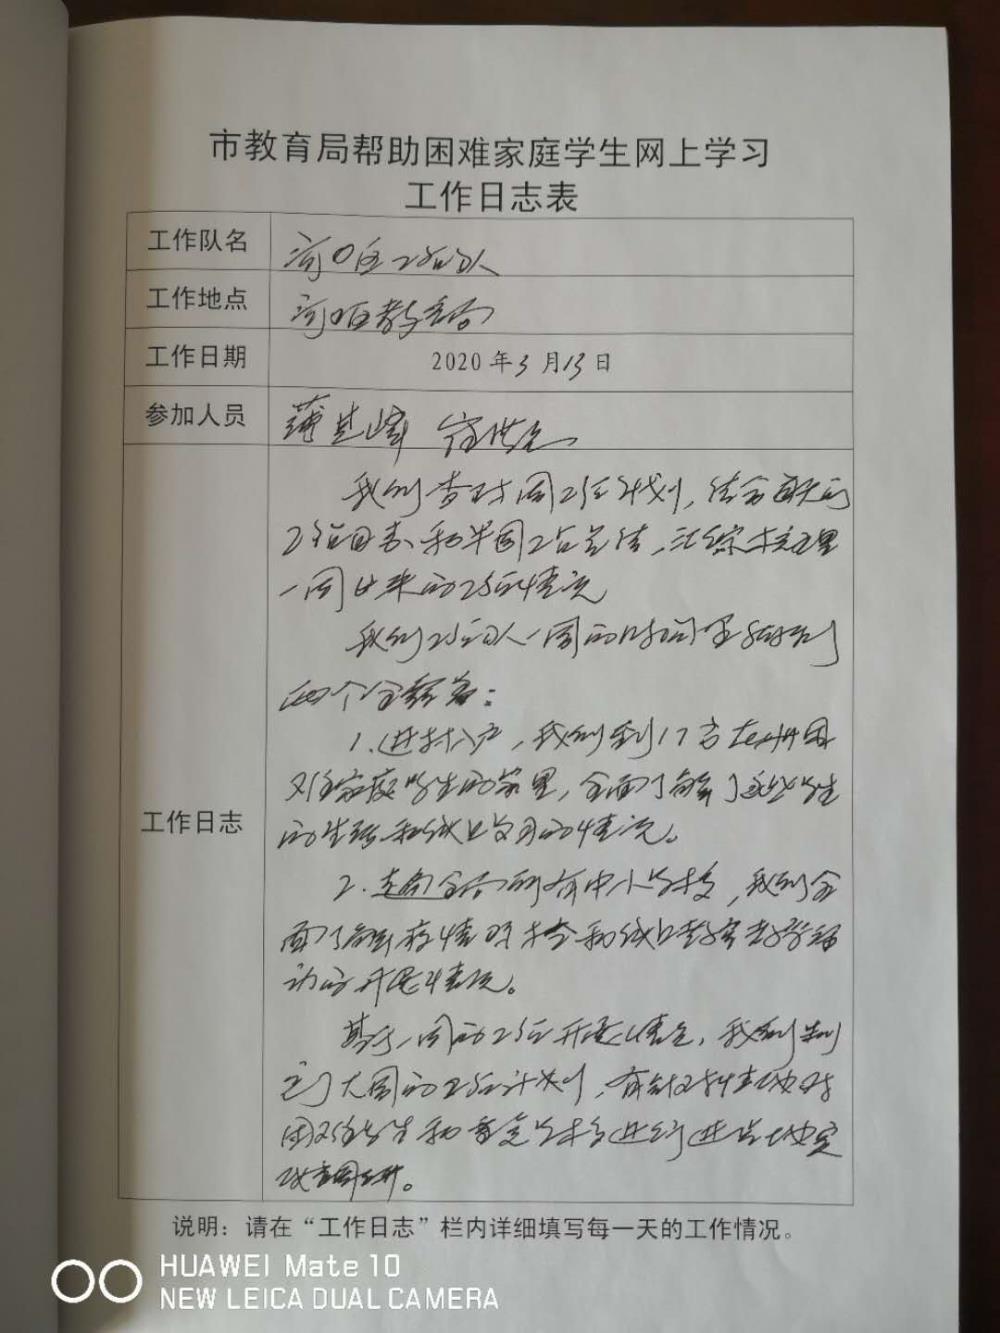 市教育局帮助困难家庭学生网上学习
工作日志表
工作队名 河口区工作队
工作地点 河口区教育局
工作日期 2020年3月13日
参加人员 蒲其峰
我们查对周工作计划，结合每天的
工作日志和半周工作总结，汇综梳理
一周以来的工作情况
我们工作队一周的时间里
两个全覆盖：
1.进村入户，我们到17名在册困
难家庭学生的家里，全面了解了这些学生
的生活和线上学习的情况。
2.走遍全局所有中小学校，我们全
面了解疫情防控和线上教育教学活
动的开展情况。
基于一周的工作开展情况，我们制
定了下周的工作计划，有针对性地对
困难学生和重点学校进行进一步
调研。
说明：请在“工作日志”栏内详细填写每一天的工作情况。
工作日志
HUAWEI Mate 10
NEW LEICA DUAL CAMERA